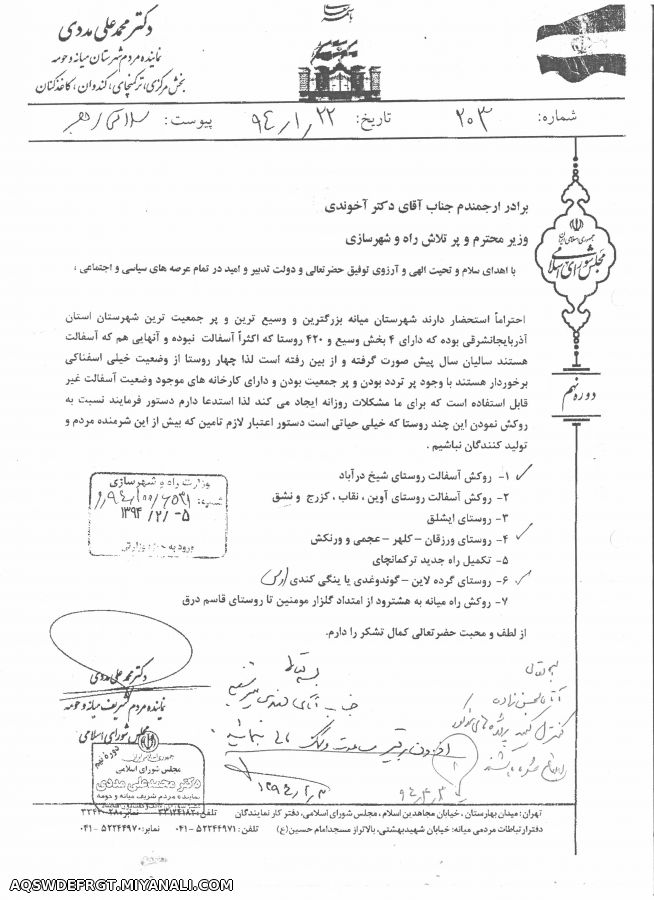 دکتر محمدعلی مددی
نماینده مردم شهرستان میانه و حومه
بخش مرکزی، ترکمنچای، کندوان، کاغذکنان
شماره: ۲۰۳ تاریخ: ۹۴/۱/۲۲ پیوست:
جمهوری اسلامی ایران
مجلس شورای اسلامی
دوره نهم
برادر ارجمندم جناب آقای دکتر آخوندی
وزیر محترم و پر تلاش راه و شهرسازی
با اهدای سلام و تحیت الهی و آرزوی توفیق حضرتعالی و دولت تدبیر و امید در تمام عرصه های سیاسی و اجتماعی ؛
احتراماً استحضار دارند شهرستان میانه بزرگترین و وسیع ترین و پر جمعیت ترین شهرستان استان
آذربایجانشرقی بوده که دارای ۴ بخش وسیع و ۴۲۰ روستا که اکثراً آسفالت نبوده و آنهایی هم که آسفالت
هستند سالیان سال پیش صورت گرفته و از بین رفته است لذا چهار روستا از وضعیت خیلی اسفناکی
برخوردار هستند با وجود پر تردد بودن و پر جمعیت بودن و دارای کارخانه های موجود وضعیت آسفالت غیر
قابل استفاده است که برای ما مشکلات روزانه ایجاد می کند لذا استدعا دارم دستور فرمایند نسبت به
روکش نمودن این چند روستا که خیلی حیاتی است دستور اعتبار لازم تامین که بیش از این شرمنده مردم و
تولید کنندگان نباشیم .
۱- روکش آسفالت روستای شیخ درآباد
۲- روکش آسفالت روستای آوین ، نقاب ، کزرج و نشق
۳- روستای ایشلق
۴- روستای ورزقان – کلهر – عجمی و ورنکش
۵- تکمیل راه جدید ترکمانچای
۶- روستای گرده لاین – گوندوغدی یا ینگی کندی
۷- روکش راه میانه به هشترود از امتداد گلزار مومنین تا روستای قاسم درق
وزارت راه و شهرسازی
شماره:
۱۳۹۴ /۲/ -۵
ورود به حوزه وزارتی
از لطف و محبت حضرتعالی کمال تشکر را دارم.
دکتر محمدعلی مددی
نماینده مردم شریف میانه و حومه
مجلس شورای اسلامی
جمهوری اسلامی ایران
مجلس شورای اسلامی
دکتر محمدعلی مددی
نماینده مردم شریف میانه و حومه
دوره نهم
بسمه تعالی
۱۳۹۴/۲/۳
۹۴/۳/۳
تهران: میدان بهارستان ، خیابان مجاهدین اسلام ، مجلس شورای اسلامی، دفتر کار نمایندگان
دفتر ارتباطات مردمی میانه: خیابان شهیدبهشتی، بالاتر از مسجدامام حسین(ع) تلفن: ۵۲۲۴۴۹۷۱ -۰۴۱ نمابر: ۵۲۲۴۴۹۷۰ -۰۴۱
AQSWDEFRGT.MIYANALI.COM